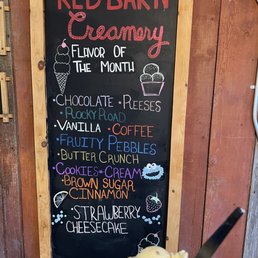 RED BARN
Creamery
FLAVOR OF
THE MONTH
• CHOCOLATE • REESES
• ROCKY ROAD
VANILLA • COFFEE
• FRUITY PEBBLES
• BUTTER CRUNCH
• COOKIES + CREAM
• BROWN SUGAR
CINNAMON
• STRAWBERRY
CHEESECAKE